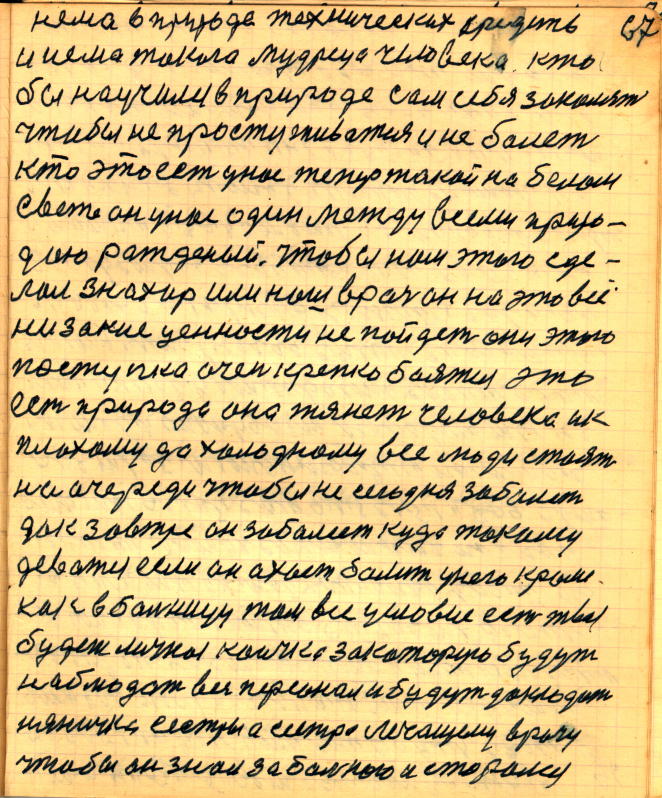 67
нема в природе технических средств
и нема токога мудреца человека. кто
бы научили в природе сам себя законят
чтобы не простуживатся и не болет
кто это ест унас теперь такой на белом
свете он унас один между всеми приро-
дою рожденый. чтобы нам этого сде-
лал знахар или наш врач он на это все
низакие ценности не пойдет они этого
поступка очен крепко боятся это
ест природа она тянет человека ик
плохому да холодному все люди стоят
на очереди чтобы не сегодня заболет
дак завтре он заболеет куда такому
деватся если он ахает болит унего кроме.
как в болницу там все условие ест твоя
будет личная коичка закоторую будут
наблюдат вес персонал и будут докладат
нянички сестры а сестра лечащему врачу
чтобы он знал за болною историю